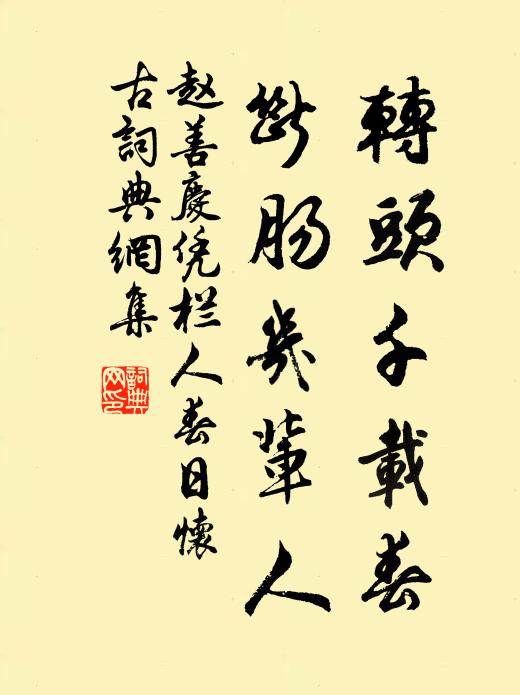 轉頭千載春
斷腸幾輩人
赵善慶凭栏人春日懷
古詞典網集
詞典网印